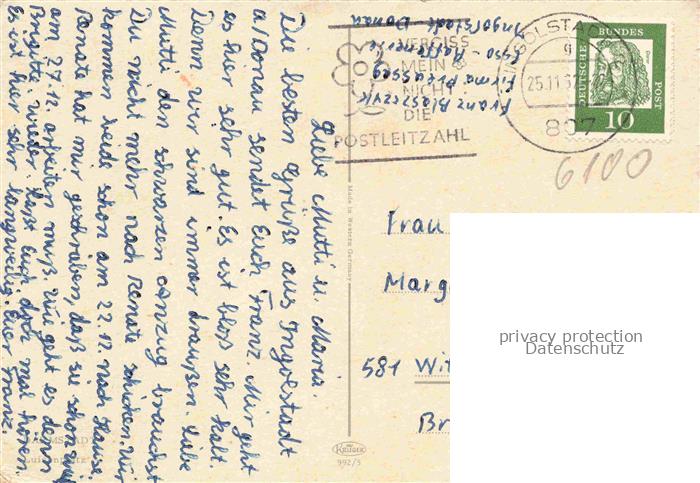 Liebe Mutti u. Maria.
Die besten Grüße aus Ingolstadt
a/Donau sendet Euch Franz. Mir geht
es hier sehr gut. Es ist bloß sehr kalt.
Denn wir sind immer draußen. Liebe
Mutti den schwarzen Anzug brauchst
Du nicht mehr nach Renate schicken. Wir
kommen beide schon am 22.12. nach Hause.
Renate hat mir geschrieben, daß sie schon
am 27.12. arbeiten muß. Wie geht es denn
Brigitte wieder. Laßt Euch doch mal hören.
Es ist hier sehr langweilig. Euer Franz.
DARMSTADT
Luisenplatz
Franz Blaszczyk
Firma
Esso - Raffinerie
Ingolstadt Donau
VERGISS
MEIN
NICHT
DIE
POSTLEITZAHL
INGOLSTA
g
25.11.6
807
DEUTSCHE BUNDES POST
Dürer
10
6100
Made in Western Germany
KRÜGER
992/5
Frau
Marg
581 Wit
Br
privacy protection
Datenschutz